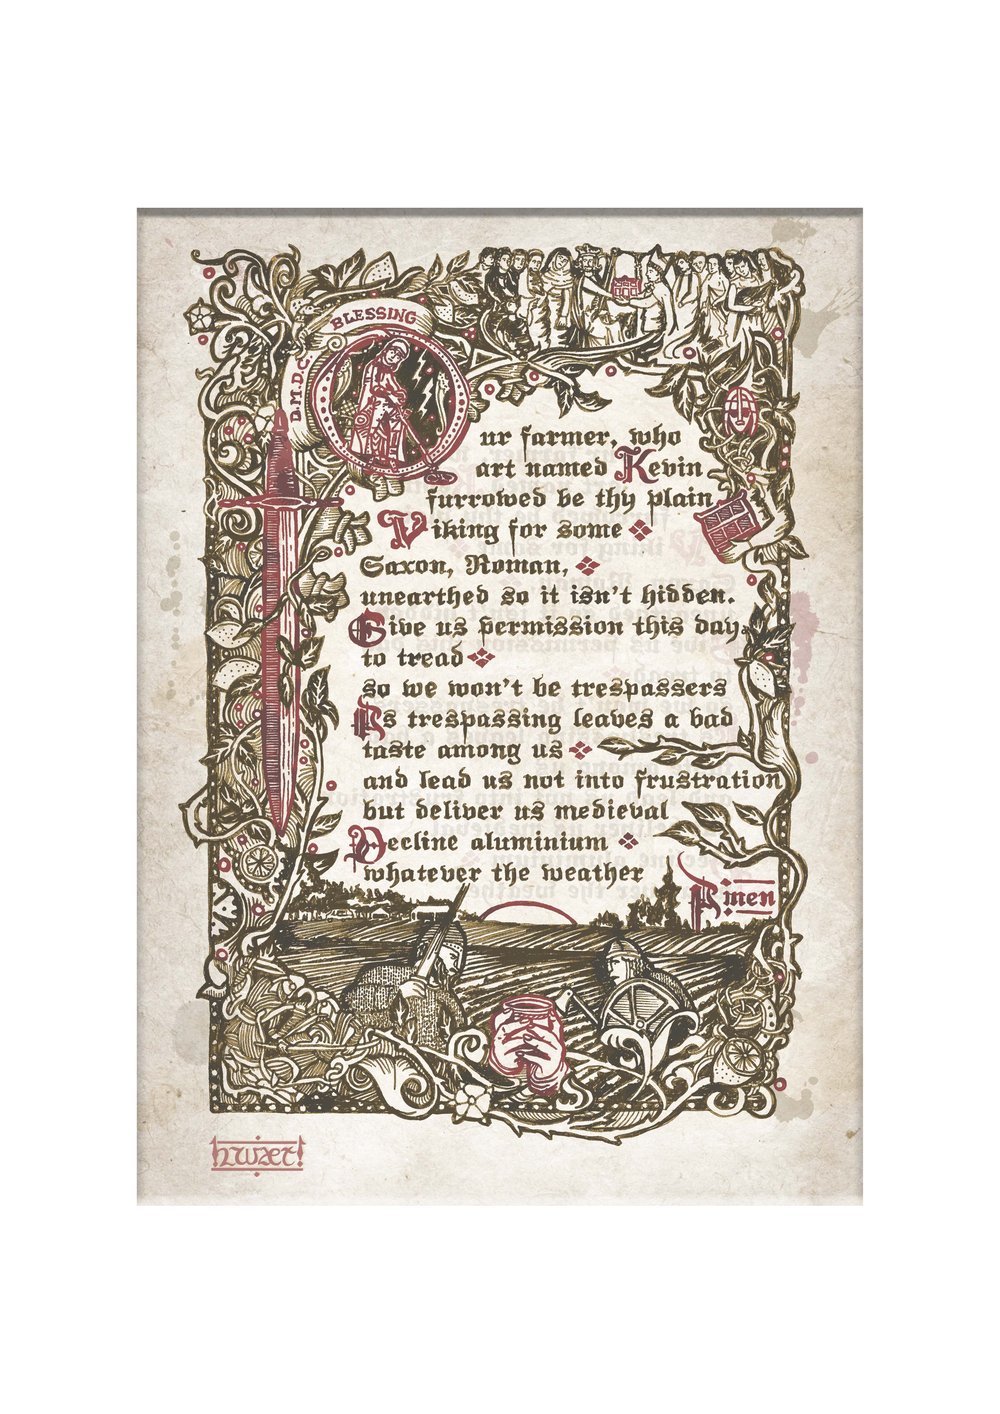 BLESSING
D.M.D.C.
Our farmer, who
art named Kevin
furrowed be thy plain
Viking for some
Saxon, Roman,
unearthed so it isn't hidden.
Give us permission this day
to tread
so we won't be trespassers
As trespassing leaves a bad
taste among us
and lead us not into frustration
but deliver us medieval
Decline aluminium
whatever the weather
Amen